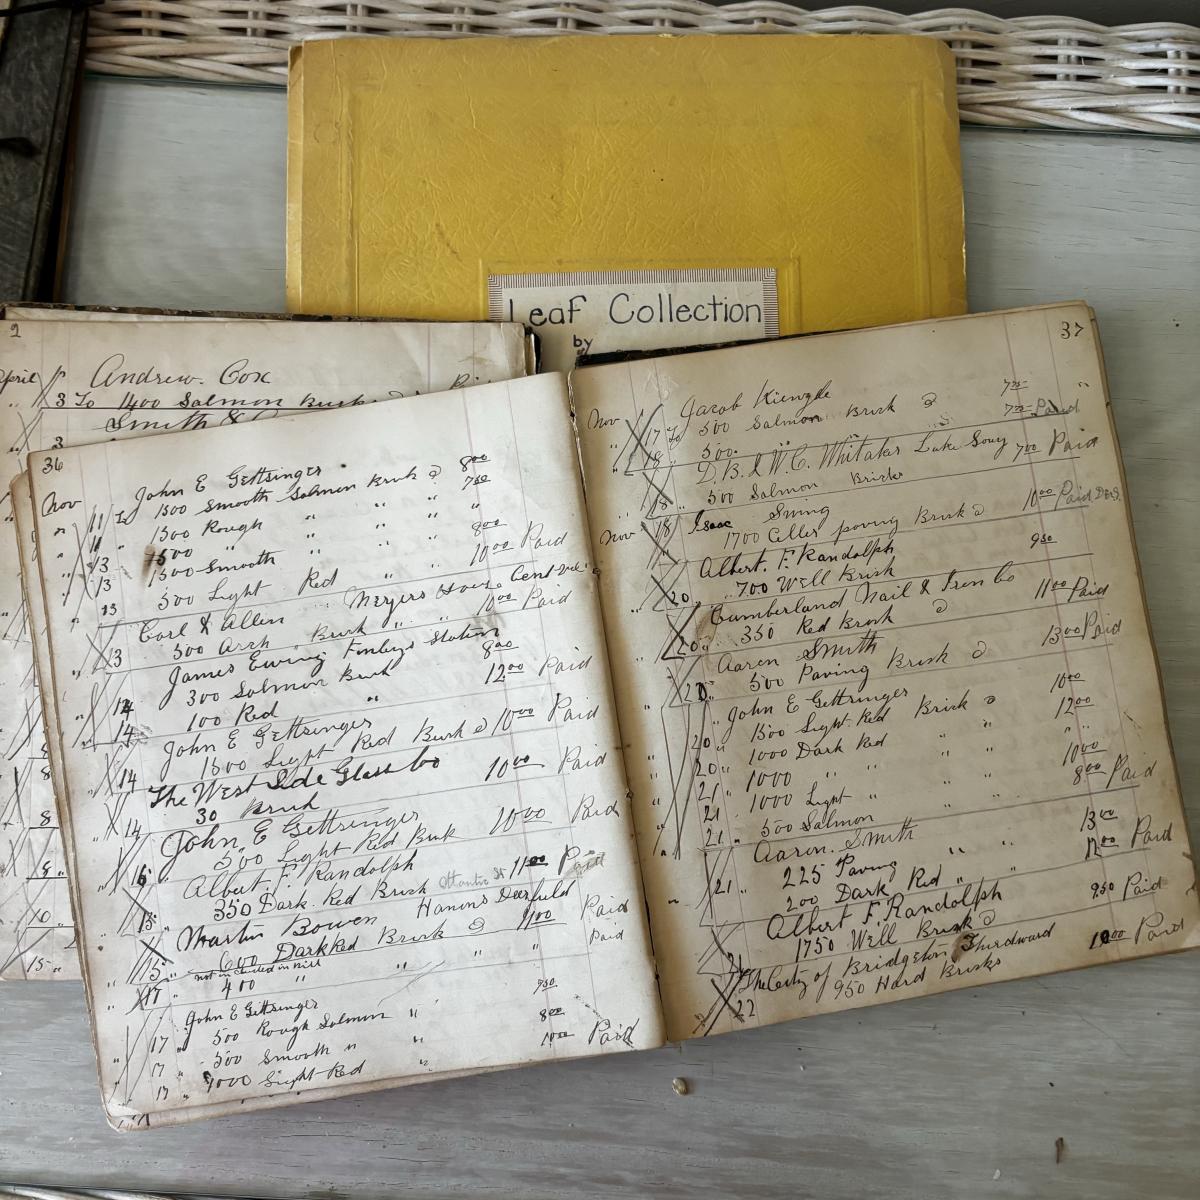 Leaf Collection
by
2
April
Andrew. Cox
3 To 1400 Salmon
Smith &
3
36
Nov
John E Gettsinger
11 To 1500 Smooth Salmon Brick @ 8 00
11 " 1500 Rough " " " 7 50
13 " 1500 " " " " "
13 1500 Smooth " " " 8 00
13 500 Light Red " " 10 00 Paid
Carl & Allen Meyers House Cent
13 500 Arch Brick " " 10 00 Paid
James Ewing Finleys Station
14 300 Salmon Brick 8 00
14 100 Red " 12 00 Paid
John E Gettsinger
14 1500 Light Red Brick @ 10 00 Paid
The West Side Glass Co
14 30 Brick 10 00 Paid
John E Gettsinger
16 500 Light Red Brick 10 00 Paid
Albert F Randolph
15 350 Dark. Red Brick Atlantic St 11 00 Paid
Martin Bowen Hanns Deerfield
15 " 600 Dark Red Brick @ 11 00 Paid
not included in Bill
17 " 400 " " " Paid
John E Gettsinger
17 500 Rough Salmon " 7 50
17 " 500 Smooth " " 8 00
17 " 1000 Light Red " 10 00 Paid
37
Nov Jacob Kienzle
17 To 500 Salmon Brick @ 7 25 "
18 500 7 25 Paid
D. B. & W. C. Whitaker Lake Souy
18 500 Salmon Bricks 7 00 Paid
Nov Isaac Swing
18 1700 Celler paving Brick @ 10 00 Paid
Albert. F. Randolph
20 " 700 Well Brick 9 50
Cumberland Nail & Iron Co
20 " 350 Red Brick @ 11 00 Paid
Aaren Smith
21 500 Paving Brick @ 13 00 Paid
John E Gettsinger
20 " 1500 Light. Red Brick @ 10 00
20 " 1000 Dark Red " " 12 00
21 " 1000 " " " "
21 1000 Light " " " 10 00
21 " 500 Salmon 8 00 Paid
Aaren. Smith
21 " 225 Paving " " 13 00
200 Dark Red " " 12 00 Paid
Albert F. Randolph
21 1750 Well Brick @ 9 50 Paid
The City of Bridgeton Third ward
22 950 Hard Bricks 10 00 Paid